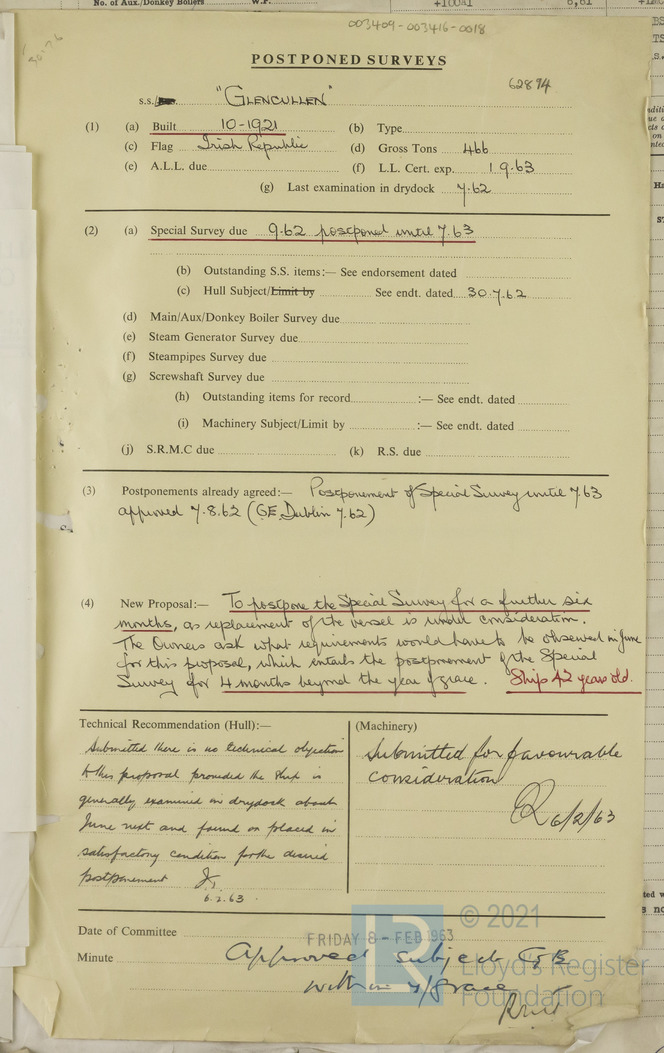 No. of Aux./Donkey Boilers W.P.
003409-003416-0018
POSTPONED SURVEYS
62894
s.s. "GLENCULLEN"
(1) (a) Built 10-1921 (b) Type
(c) Flag Irish Republic (d) Gross Tons 466
(e) A.L.L. due (f) L.L. Cert. exp. 1.9.63
(g) Last examination in drydock 7.62
(2) (a) Special Survey due 9.62 postponed until 7.63
(b) Outstanding S.S. items:— See endorsement dated
(c) Hull Subject/Limit by See endt. dated 30.7.62
(d) Main/Aux/Donkey Boiler Survey due
(e) Steam Generator Survey due
(f) Steampipes Survey due
(g) Screwshaft Survey due
(h) Outstanding items for record :— See endt. dated
(i) Machinery Subject/Limit by :— See endt. dated
(j) S.R.M.C due (k) R.S. due
(3) Postponements already agreed:— Postponement of Special Survey until 7.63
approved 7.8.62 (GE, Dublin 7.62)
(4) New Proposal:— To postpone the Special Survey for a further six
months, as replacement of the vessel is under consideration.
The Owners ask what requirements would have to be observed in June
for this proposal, which entails the postponement of the Special
Survey for 4 months beyond the year of grace. Ship 42 years old.
Technical Recommendation (Hull):—
Submitted there is no technical objection
to this proposal provided the ship is
generally examined in drydock about
June next and found or placed in
satisfactory condition for the desired
postponement
6.2.63.
(Machinery)
Submitted for favourable
consideration
6/2/63
Date of Committee FRIDAY 8 - FEB 1963
Minute Approved subject
within y/grace
© 2021
Lloyd's Register
Foundation